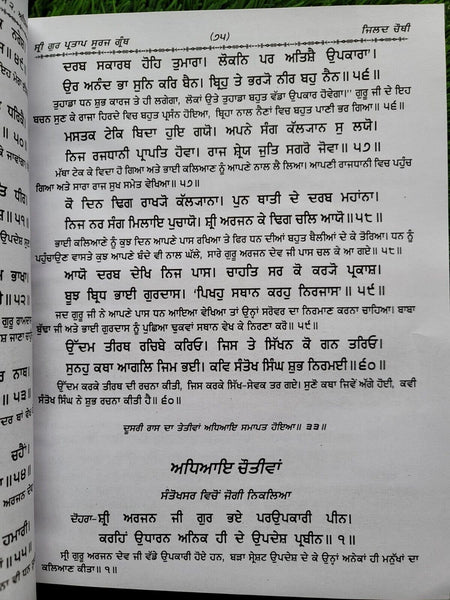 ਸ੍ਰੀ ਗੁਰ ਪ੍ਰਤਾਪ ਸੂਰਜ ਗ੍ਰੰਥ (੭੫) ਜਿਲਦ ਚੌਥੀ
ਦਰਬ ਸਕਾਰਥ ਹੋਹਿ ਤੁਮਾਰਾ। ਲੋਕਨਿ ਪਰ ਅਤਿਸ਼ੈ ਉਪਕਾਰਾ'।
ਉਰ ਅਨੰਦ ਭਾ ਸੁਨਿ ਕਰਿ ਬੈਨ। ਬਿਹੁ ਤੇ ਭਰ੍ਯੋ ਨੀਰ ਬਹੁ ਨੈਨ॥੫੬॥
ਤੁਹਾਡਾ ਧਨ ਸ਼ੁਭ ਕਾਰਜ ਤੇ ਹੀ ਲਗੇਗਾ, ਲੋਕਾਂ ਉਤੇ ਤੁਹਾਡਾ ਬਹੁਤ ਵੱਡਾ ਉਪਕਾਰ ਹੋਵੇਗਾ।'' ਗੁਰੂ ਜੀ ਦੇ ਇਹ
ਬਚਨ ਸੁਣ ਕੇ ਰਾਜਾ ਹਿਰਦੇ ਵਿਚ ਬਹੁਤ ਪ੍ਰਸੰਨ ਹੋਇਆ, ਬ੍ਰਿਹਾ ਨਾਲ ਨੈਣਾਂ ਵਿਚ ਬਹੁਤਾ ਪਾਣੀ ਭਰ ਗਿਆ॥੫੬॥
ਮਸਤਕ ਟੇਕਿ ਬਿਦਾ ਹੁਇ ਗਯੋ। ਅਪਨੇ ਸੰਗ ਕੱਲ੍ਯਾਨ ਸੁ ਲਯੋ।
ਨਿਜ ਰਜਧਾਨੀ ਪ੍ਰਾਪਤਿ ਹੋਵਾ। ਰਾਜ ਸ਼੍ਰੇਯ ਜੁਤਿ ਸਗਰੋ ਜੋਵਾ॥੫੭॥
ਮੱਥਾ ਟੇਕ ਕੇ ਵਿਦਾ ਹੋ ਗਿਆ ਅਤੇ ਭਾਈ ਕਲਿਆਣ ਨੂੰ ਆਪਣੇ ਨਾਲ ਲੈ ਲਿਆ। ਆਪਣੀ ਰਾਜਧਾਨੀ ਵਿਚ ਪਹੁੰਚ
ਗਿਆ ਅਤੇ ਸਾਰਾ ਰਾਜ ਸੁਖ ਸਮੇਤ ਵੇਖਿਆ॥੫੭॥
ਕੋ ਦਿਨ ਢਿਗ ਰਾਖ੍ਯੋ ਕੱਲ੍ਯਾਨਾ। ਪੁਨ ਥਾਤੀ ਦੇ ਦਰਬ ਮਹਾਂਨਾ।
ਨਿਜ ਨਰ ਸੰਗ ਮਿਲਾਇ ਪੁਚਾਯੋ। ਸ਼੍ਰੀ ਅਰਜਨ ਕੇ ਢਿਗ ਚਲਿ ਆਯੋ॥੫੮॥
ਭਾਈ ਕਲਿਆਣੇ ਨੂੰ ਕੁਝ ਦਿਨ ਆਪਣੇ ਪਾਸ ਰਖਿਆ ਤੇ ਫਿਰ ਧਨ ਦੀਆਂ ਬਹੁਤ ਥੈਲੀਆਂ ਦੇ ਕੇ ਤੋਰਿਆ। ਧਨ ਨੂੰ
ਪਹੁੰਚਾਉਣ ਵਾਸਤੇ ਕੁਝ ਆਪਣੇ ਬੰਦੇ ਵੀ ਨਾਲ ਘੱਲੇ, ਸਾਰੇ ਗੁਰੂ ਅਰਜਨ ਦੇਵ ਜੀ ਪਾਸ ਚਲ ਕੇ ਆ ਗਏ॥੫੮॥
ਆਯੋ ਦਰਬ ਦੇਖਿ ਨਿਜ ਪਾਸ। ਚਾਹਤਿ ਸਰ ਕੋ ਕਰ੍ਯੋ ਪ੍ਰਕਾਸ਼।
ਬੂਝ ਬ੍ਰਿਧ ਭਾਈ ਗੁਰਦਾਸ। 'ਪਿਖਹੁ ਸਥਾਨ ਕਰਹੁ ਨਿਰਜਾਸ'॥੫੯॥
ਜਦ ਗੁਰੂ ਜੀ ਨੇ ਆਪਣੇ ਪਾਸ ਧਨ ਆਇਆ ਵੇਖਿਆ ਤਾਂ ਉਨ੍ਹਾਂ ਸਰੋਵਰ ਦਾ ਨਿਰਮਾਣ ਕਰਨਾ ਚਾਹਿਆ। ਬਾਬਾ
ਬੁੱਢਾ ਜੀ ਅਤੇ ਭਾਈ ਗੁਰਦਾਸ ਨੂੰ ਪੁਛਿਆ ਢੁਕਵਾਂ ਸਥਾਨ ਵੇਖ ਕੇ ਨਿਰਣਾ ਕਰੋ॥੫੯॥
ਉੱਦਮ ਤੀਰਥ ਰਚਿਬੇ ਕਰਿਓ। ਜਿਸ ਤੇ ਸਿੱਖਨ ਕੋ ਗਨ ਤਰਿਓ।
ਸੁਨਹੁ ਕਥਾ ਆਗਲਿ ਜਿਮ ਭਈ। ਕਵਿ ਸੰਤੋਖ ਸਿੰਘ ਸ਼ੁਭ ਨਿਰਮਈ॥੬੦॥
ਉੱਦਮ ਕਰਕੇ ਤੀਰਥ ਦੀ ਰਚਨਾ ਕੀਤੀ, ਜਿਸ ਕਰਕੇ ਸਿੱਖ-ਸੇਵਕ ਤਰ ਗਏ। ਸੁਣੋ ਕਥਾ ਜਿਵੇਂ ਅੱਗੇ ਹੋਈ, ਕਵੀ
ਸੰਤੋਖ ਸਿੰਘ ਨੇ ਸ਼ੁਭ ਰਚਨਾ ਕੀਤੀ ਹੈ॥੬੦॥
ਦੂਸਰੀ ਰਾਸ ਦਾ ਤੇਤੀਵਾਂ ਅਧਿਆਇ ਸਮਾਪਤ ਹੋਇਆ॥੩੩॥
ਅਧਿਆਇ ਚੌਤੀਵਾਂ
ਸੰਤੋਖਸਰ ਵਿਚੋਂ ਜੋਗੀ ਨਿਕਲਿਆ
ਦੋਹਰਾ-ਸ਼੍ਰੀ ਅਰਜਨ ਜੀ ਗੁਰ ਭਏ ਪਰਉਪਕਾਰੀ ਪੀਨ।
ਕਰਹਿਂ ਉਧਾਰਨ ਅਨਿਕ ਹੀ ਦੇ ਉਪਦੇਸ਼ ਪ੍ਰਬੀਨ॥੧॥
ਸ੍ਰੀ ਗੁਰੂ ਅਰਜਨ ਦੇਵ ਜੀ ਵੱਡੇ ਉਪਕਾਰੀ ਹੋਏ ਹਨ, ਬੜਾ ਸ੍ਰੇਸ਼ਟ ਉਪਦੇਸ਼ ਦੇ ਕੇ ਉਨ੍ਹਾਂ ਅਨੇਕਾਂ ਹੀ ਮਨੁੱਖਾਂ ਦਾ
ਕਲਿਆਣ ਕੀਤਾ॥੧॥